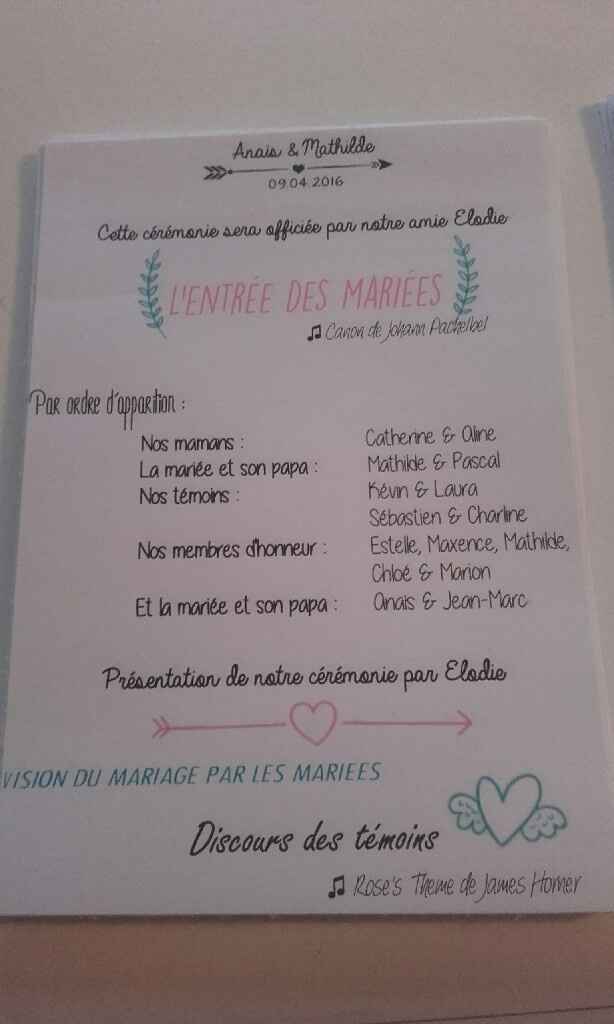 Anais & Mathilde
09.04.2016
Cette cérémonie sera officiée par notre amie Elodie
L'ENTRÉE DES MARIÉES
♫ Canon de Johann Pachelbel
Par ordre d'apparition :
Nos mamans : Catherine & Aline
La mariée et son papa : Mathilde & Pascal
Nos témoins : Kévin & Laura
Sébastien & Charline
Nos membres d'honneur : Estelle, Maxence, Mathilde,
Chloé & Marion
Et la mariée et son papa : Anais & Jean-Marc
Présentation de notre cérémonie par Elodie
VISION DU MARIAGE PAR LES MARIEES
Discours des témoins
♫ Rose's Theme de James Horner